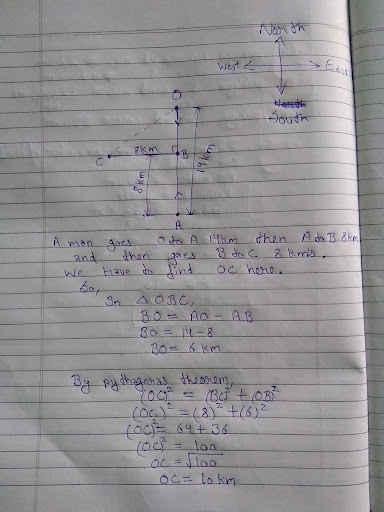 North
West East
South
O
8km
C B
8km
14km
A
A man goes O to A 14km then A to B 8km
and then goes B to C 8 kms.
We have to find OC here.
So,
In △OBC,
BO = AO - AB
BO = 14-8
BO = 6 km
By pythagoras theorem,
(OC)² = (BC)² + (OB)²
(OC)² = (8)² + (6)²
(OC)² = 64 + 36
(OC)² = 100
OC = √100
OC = 10km